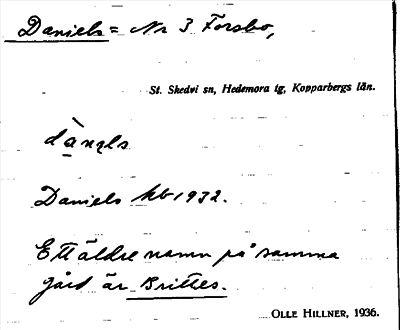 Daniels = Nr 3 Forsbo,
St. Skedvi sn, Hedemora tg, Kopparbergs län.
dànəls
Daniels kb 1932.
Ett äldre namn på samma
gård är Brittes.
OLLE HILLNER, 1936.